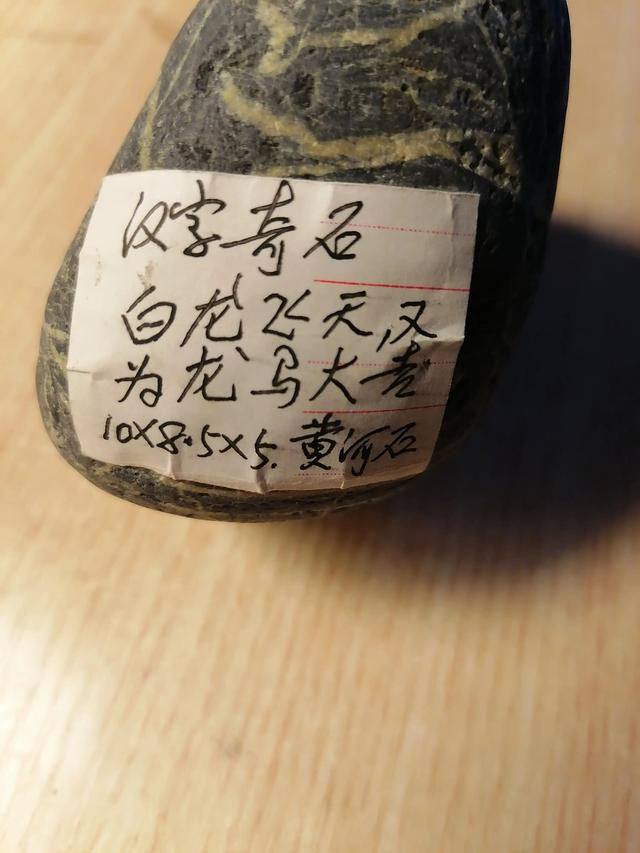 汉字奇石
白龙飞天,又
为龙马大吉
10×8.5×5.黄河石